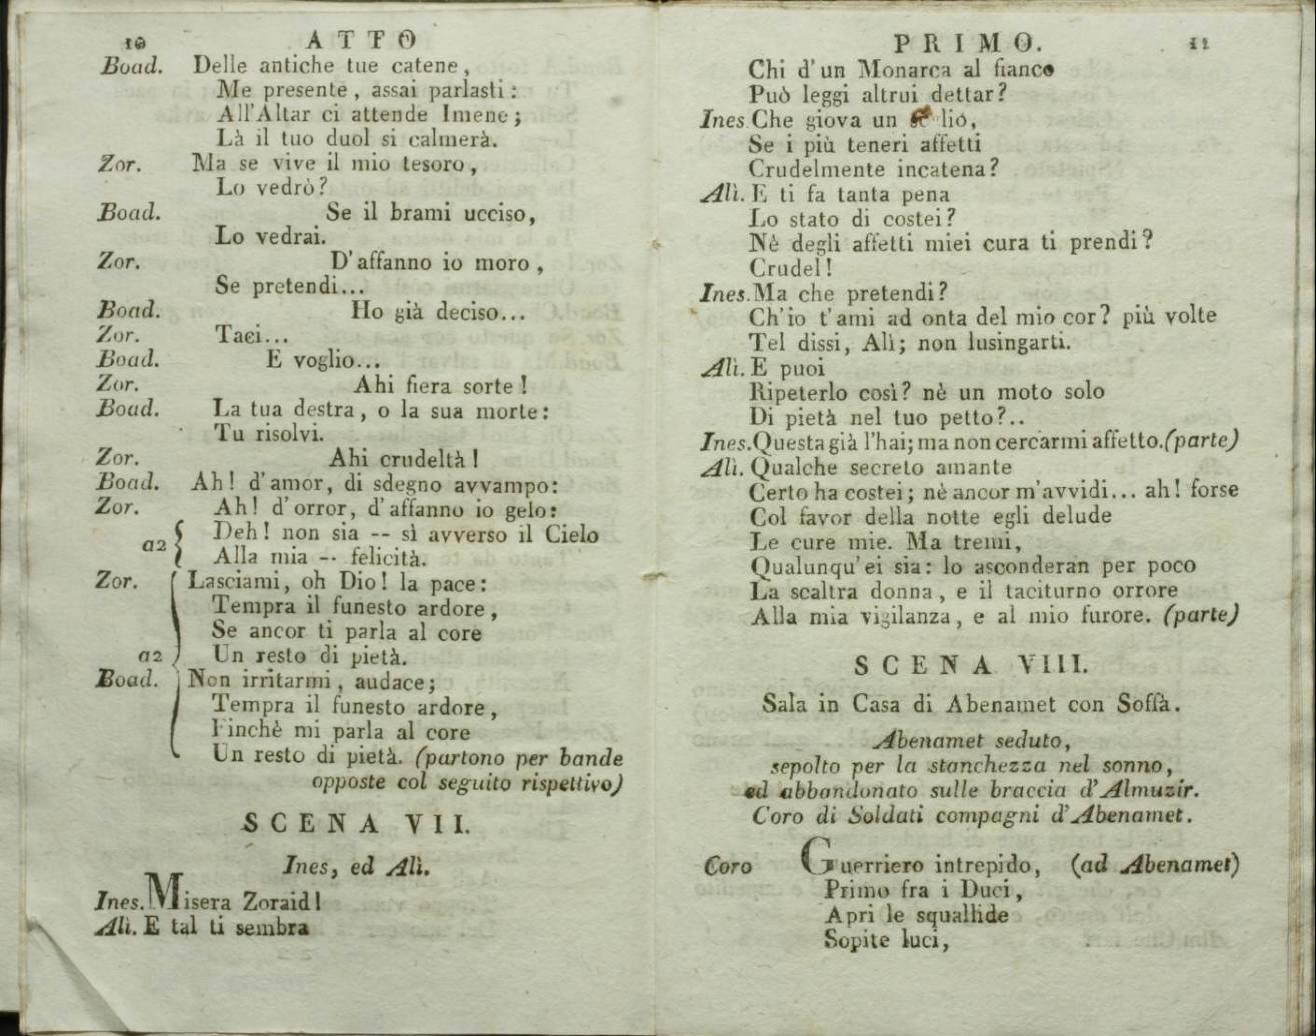 10 ATTO
Boad. Delle antiche tue catene,
Me presente, assai parlasti:
All'Altar ci attende Imene;
Là il tuo duol si calmerà.
Zor. Ma se vive il mio tesoro,
Lo vedrò?
Boad. Se il brami ucciso,
Lo vedrai.
Zor. D'affanno io moro,
Se pretendi...
Boad. Ho già deciso...
Zor. Taci...
Boad. E voglio...
Zor. Ahi fiera sorte!
Boad. La tua destra, o la sua morte:
Tu risolvi.
Zor. Ahi crudeltà!
Boad. Ah! d'amor, di sdegno avvampo:
Zor. Ah! d'orror, d'affanno io gelo:
a2 Deh! non sia -- sì avverso il Cielo
Alla mia -- felicità.
Zor. Lasciami, oh Dio! la pace:
Tempra il funesto ardore,
Se ancor ti parla al core
a2 Un resto di pietà.
Boad. Non irritarmi, audace;
Tempra il funesto ardore,
Finchè mi parla al core
Un resto di pietà. (partono per bande
opposte col seguito rispettivo)
SCENA VII.
Ines, ed Alì.
Ines. Misera Zoraid!
Alì. E tal ti sembra
PRIMO. 11
Chi d'un Monarca al fianco
Può leggi altrui dettar?
Ines Che giova un lio,
Se i più teneri affetti
Crudelmente incatena?
Alì. E ti fa tanta pena
Lo stato di costei?
Nè degli affetti miei cura ti prendi?
Crudel!
Ines. Ma che pretendi?
Ch'io t'ami ad onta del mio cor? più volte
Tel dissi, Alì; non lusingarti.
Alì. E puoi
Ripeterlo così? nè un moto solo
Di pietà nel tuo petto?..
Ines. Questa già l'hai; ma non cercarmi affetto. (parte)
Alì. Qualche secreto amante
Certo ha costei; nè ancor m'avvidi... ah! forse
Col favor della notte egli delude
Le cure mie. Ma tremi,
Qualunqu'ei sia: lo asconderan per poco
La scaltra donna, e il taciturno orrore
Alla mia vigilanza, e al mio furore. (parte)
SCENA VIII.
Sala in Casa di Abenamet con Soffà.
Abenamet seduto,
sepolto per la stanchezza nel sonno,
ed abbandonato sulle braccia d'Almuzir.
Coro di Soldati compagni d'Abenamet.
Coro Guerriero intrepido, (ad Abenamet)
Primo fra i Duci,
Apri le squallide
Sopite luci,